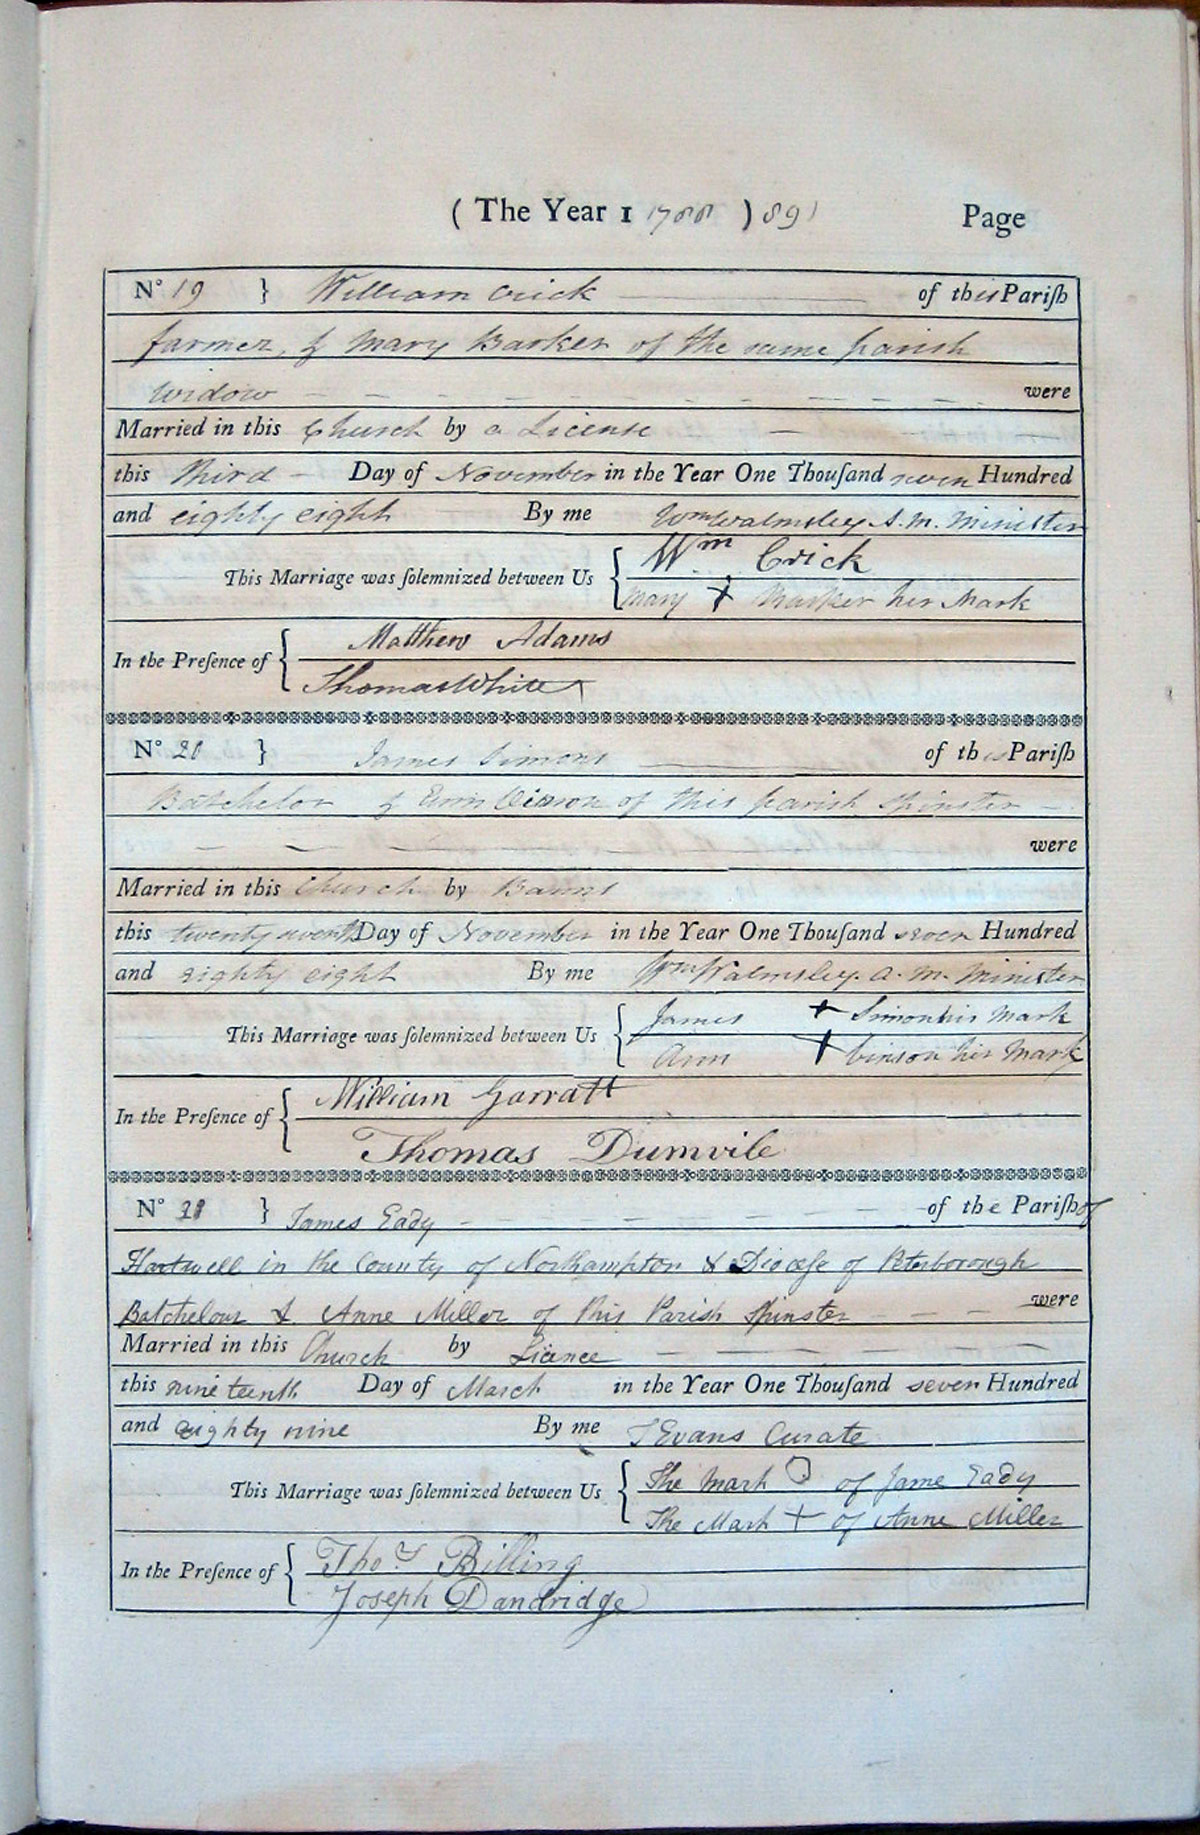 ( The Year 1 1788 ) 89 Page
No 19 } William Crick of this Pariſh
farmer, & Mary Barker of the same parish
widow were
Married in this Church by a License
this third Day of November in the Year One Thouſand seven Hundred
and eighty eight By me Wm Walmsley A.M. Minister
This Marriage was ſolemnized between Us { Wm Crick
Mary + Barker her Mark
In the Preſence of { Matthew Adams
Thomas White
No 20 } James Simons of this Pariſh
Batchelor & of this parish Spinster
were
Married in this Church by Banns
this twenty Day of November in the Year One Thouſand seven Hundred
and eighty eight By me Wm Walmsley A.M. Minister
This Marriage was ſolemnized between Us { James + Simon his Mark
Ann + her Mark
In the Preſence of { William Garratt
Thomas Dumvile
No } James Eady of the Pariſh of
Hartwell in the County of Northampton & Dioceſe of Peterborough
Batchelour & Anne Miller of this Parish Spinster were
Married in this Church by Licence
this nineteenth Day of March in the Year One Thouſand seven Hundred
and eighty nine By me T Evans Curate
This Marriage was ſolemnized between Us { The Mark O of Jame Eady
The Mark + of Anne Miller
In the Preſence of { Thos Billing
Joseph Dandridge